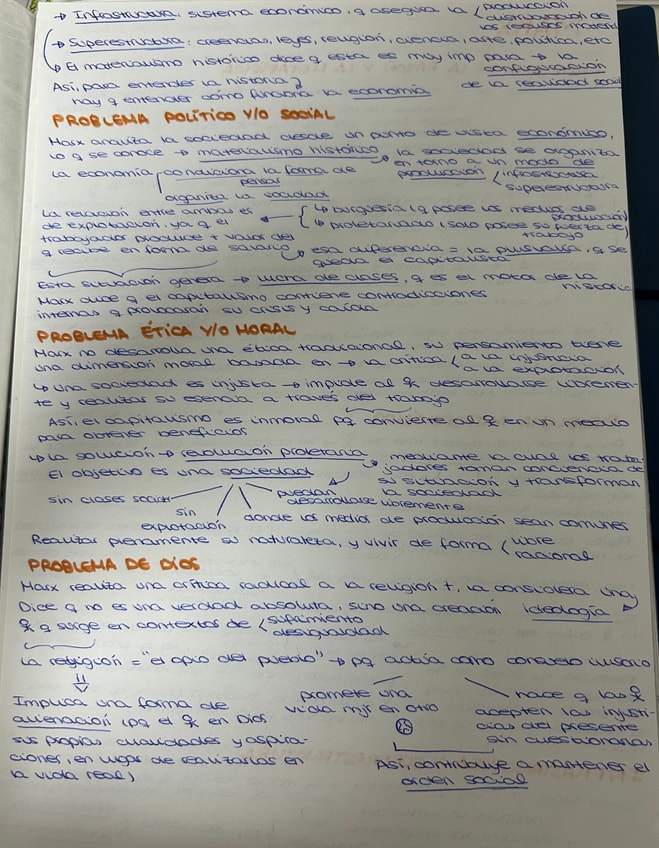 → Infraestructura: sistema económico, q asegura la producción
distribución de
los recursos materia
→ Superestructura: creencias, leyes, religión, ciencia, arte, política, etc
→ El materialismo histórico dice q esta es muy imp para → la
configuración
de la realidad social
Así, para entender la historia,
hay q entender cómo funciona la economía
PROBLEMA POLÍTICO Y/O SOCIAL
Marx analiza la sociedad desde un punto de vista económico,
lo q se conoce → materialismo histórico → la sociedad se organiza
en torno a un modo de
producción infraestructura
superestructura
La economía condiciona la forma de
pensar
organiza la sociedad
La relación entre ambas es
de explotación, ya q el
trabajador produce + valor del
q recibe en forma de salario
burguesía (q posee los medios de
producción)
proletariado (solo posee su fuerza de
trabajo)
esa diferencia = la plusvalía, q se
queda el capitalista
Esta situación genera → lucha de clases, q es el motor de la
historia
Marx dice q el capitalismo contiene contradicciones
internas q provocarán su crisis y caída
PROBLEMA ÉTICA Y/O MORAL
Marx no desarrolla una ética tradicional, su pensamiento tiene
una dimensión moral basada en → la crítica a la injusticia
a la explotación
↳ una sociedad es injusta → impide al desarrollarse libremen-
te y realizar su esencia a través del trabajo
Así, el capitalismo es inmoral pq convierte al en un medio
para obtener beneficios
↳ La solución → revolución proletaria
mediante la cual los traba-
jadores toman conciencia de
su situación y transforman
la sociedad
El objetivo es una sociedad
sin clases sociales
sin
explotación
puedan
desarrollarse libremente
donde los medios de producción sean comunes
Realizar plenamente su naturaleza, y vivir de forma libre
racional
PROBLEMA DE DIOS
Marx realiza una crítica radical a la religión +, la considera una
ideología
Dice q no es una verdad absoluta, sino una creación
q surge en contextos de sufrimiento
desigualdad
La religión = "el opio del pueblo" → pq actúa como consuelo ilusorio
Implica una forma de
alienación (pq el en Dios
sus propias cualidades y aspira-
ciones, en lugar de realizarlas en
la vida real)
promete una
vida mjr en otro
hace q los
acepten las injusti-
cias del presente
sin cuestionarlas
Así, contribuye a mantener el
orden social